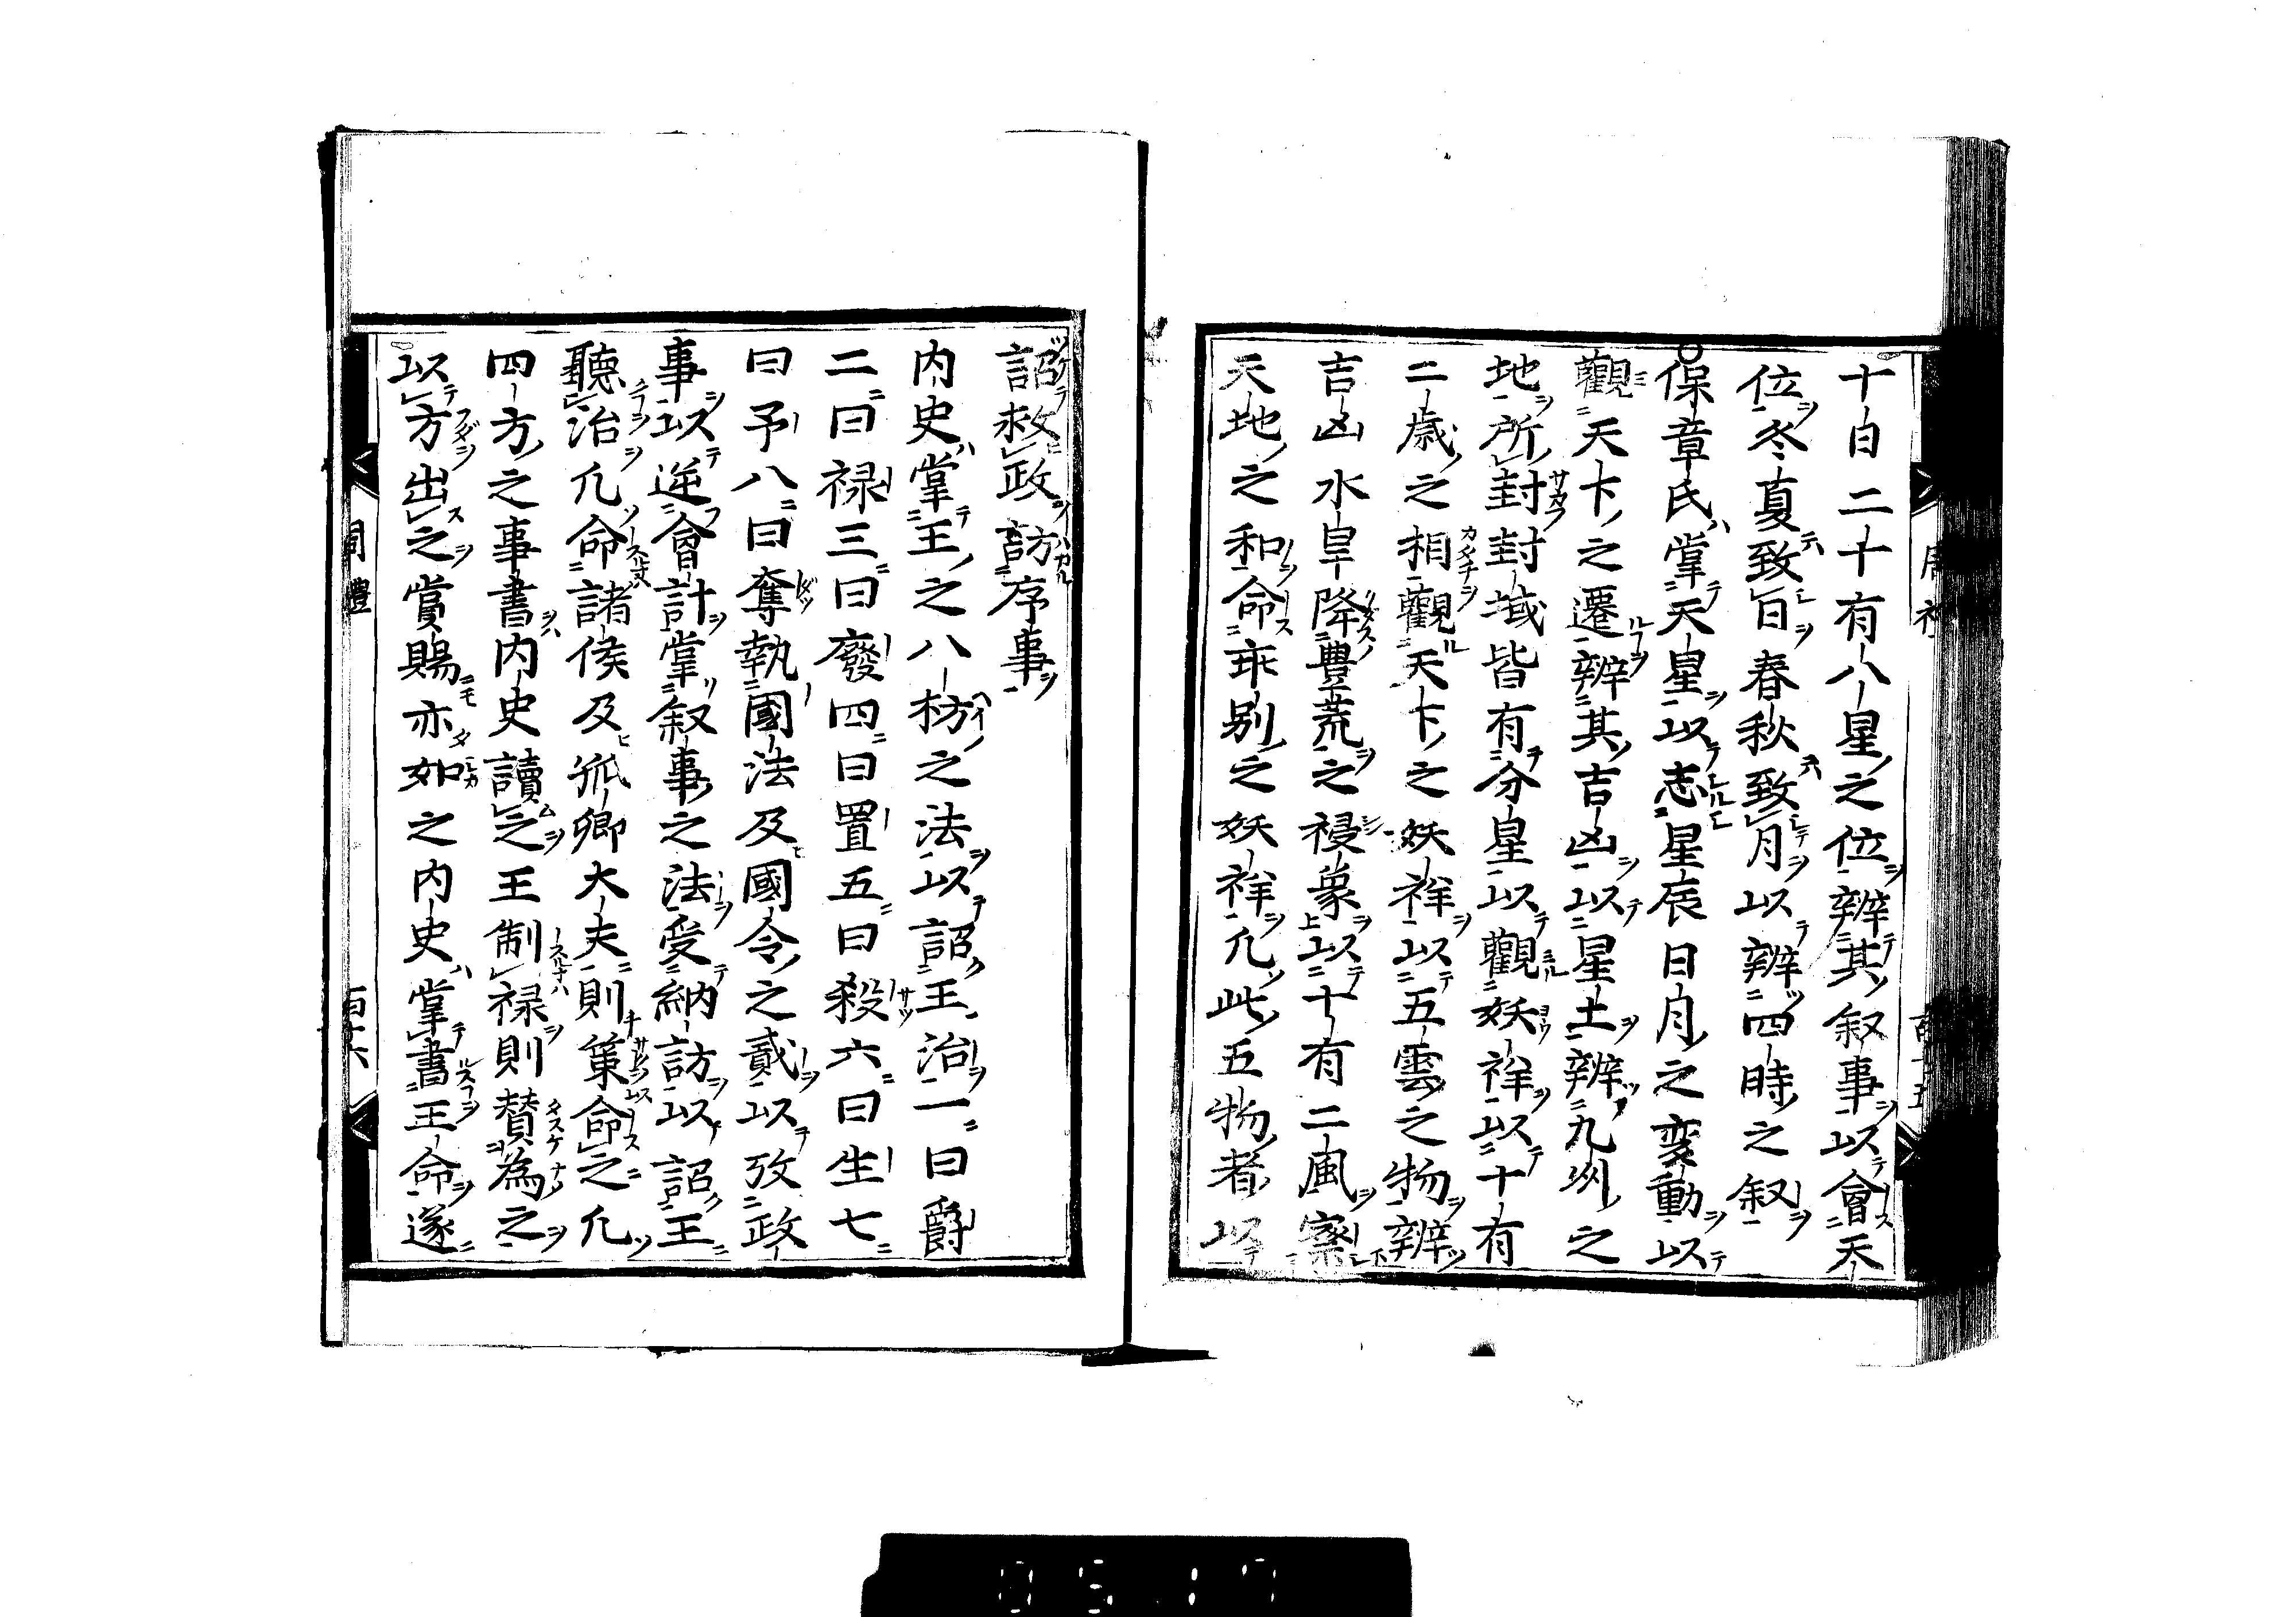 十日二十有八星之位辨其叙事以會天
位冬夏致日春秋致月以辨四時之叙
○保章氏掌天星以志星辰日月之変動以
觀天下之遷辨其吉凶以星土辨九州之
地所封封域皆有分星以觀妖祥以十有
二歲之相觀天下之妖祥以五雲之物辨
吉凶水旱降豊荒之祲象以十有二風察
天地之和命乖别之妖祥凢此五物者以
詔救政訪序事
内史掌王之八枋之法以詔王治一曰爵
二曰禄三曰廢四曰置五曰殺六曰生七
曰予八曰奪執國法及國令之貳以攷政
事以逆會計掌叙事之法受納訪以詔王
聽治凢命諸侯及孤卿大夫則策命之凢
四方之事書内史讀之王制禄則賛為之
以方出之賞賜亦如之内史掌書王命遂
周禮
百十六